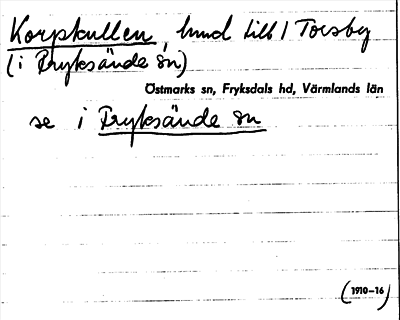 Korpkullen, hund till 1 Torsby
(i Fryksände sn)
Östmarks sn, Fryksdals hd, Värmlands län
se i Fryksände sn
(1910-16)